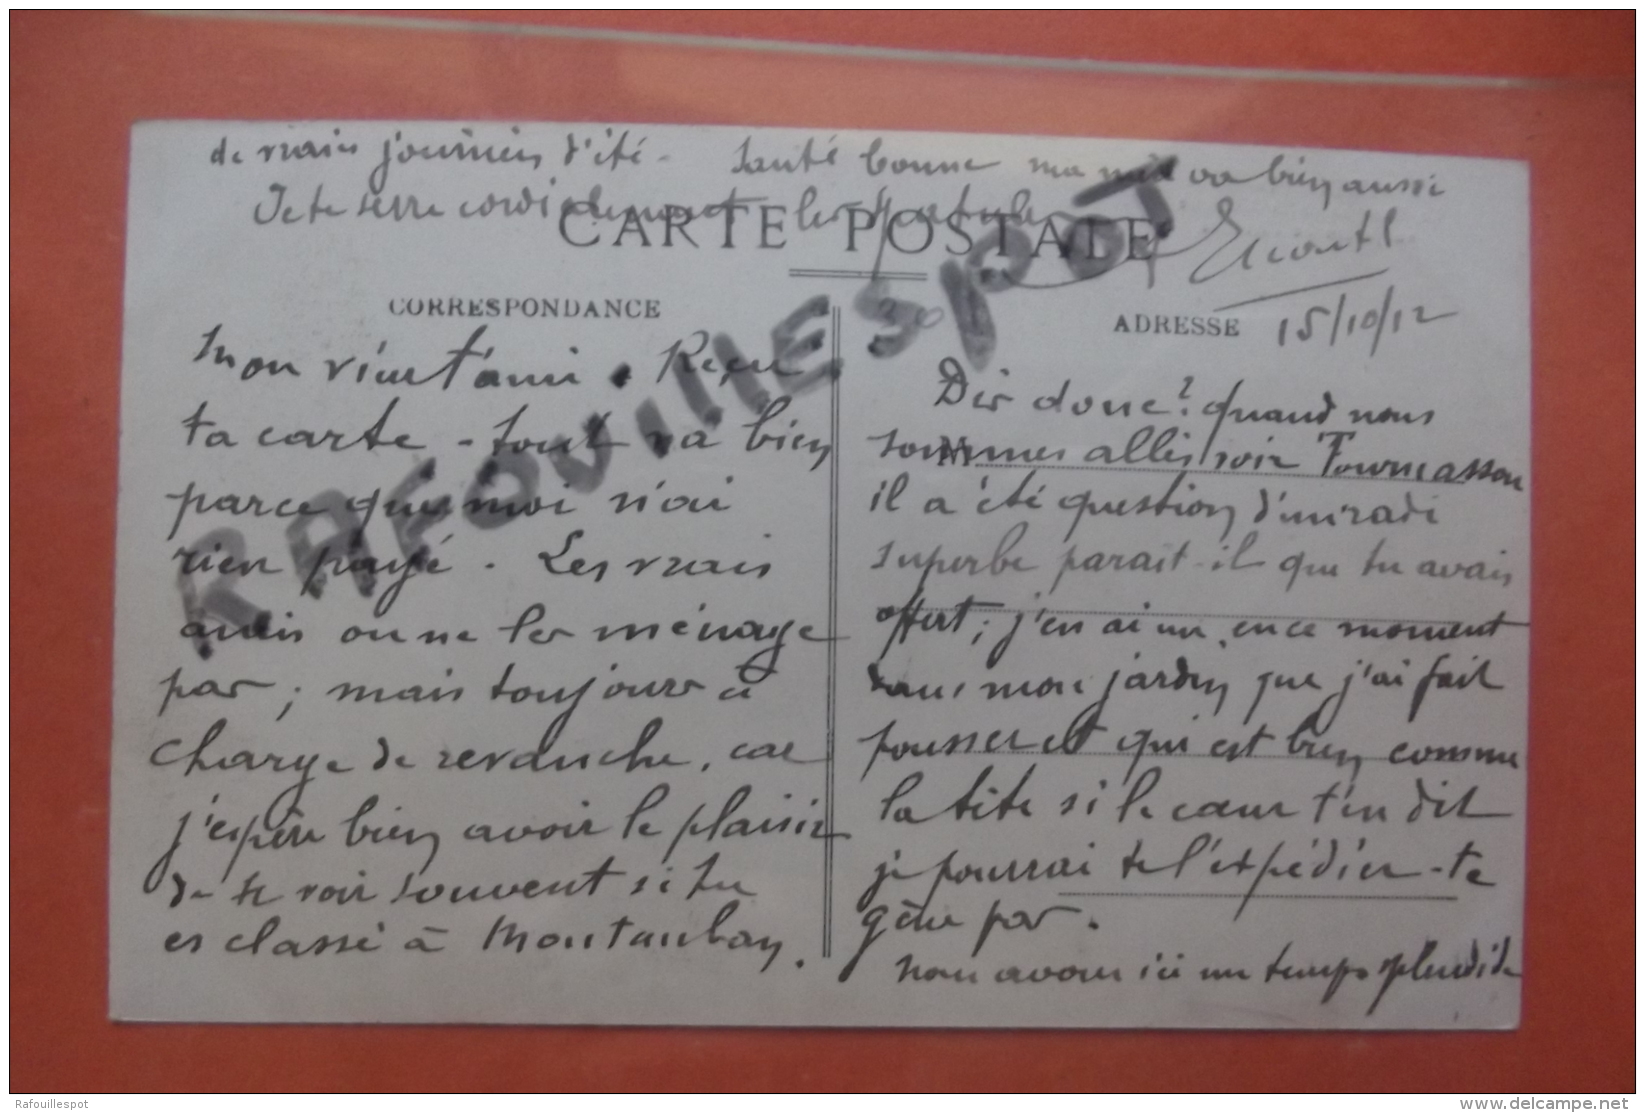 de vraies journées d'été - Santé bonne ma mère va bien aussi
Je te serre cordialement les
CARTE POSTALE
15/10/12
CORRESPONDANCE
ADRESSE
RAFOUILLESPOT
Mon vieux t'ami. Reçu
ta carte - tout va bien
parce que moi n'ai
rien payé. Les vrais
amis on ne les ménage
pas ; mais toujours à
charge de revanche, car
j'espère bien avoir le plaisir
de te voir souvent si tu
es classé à Montauban.
Dis donc ? quand nous
M
sommes allés voir Fournasson
il a été question d'un radis
superbe parait-il que tu avais
offert ; j'en ai un en ce moment
dans mon jardin que j'ai fait
pousser et qui est bien comme
la tête si le cœur t'en dit
je pourrai te l'expédier - te
gêne pas.
Nous avons ici un temps splendide
Rafouillespot
www.delcampe.net